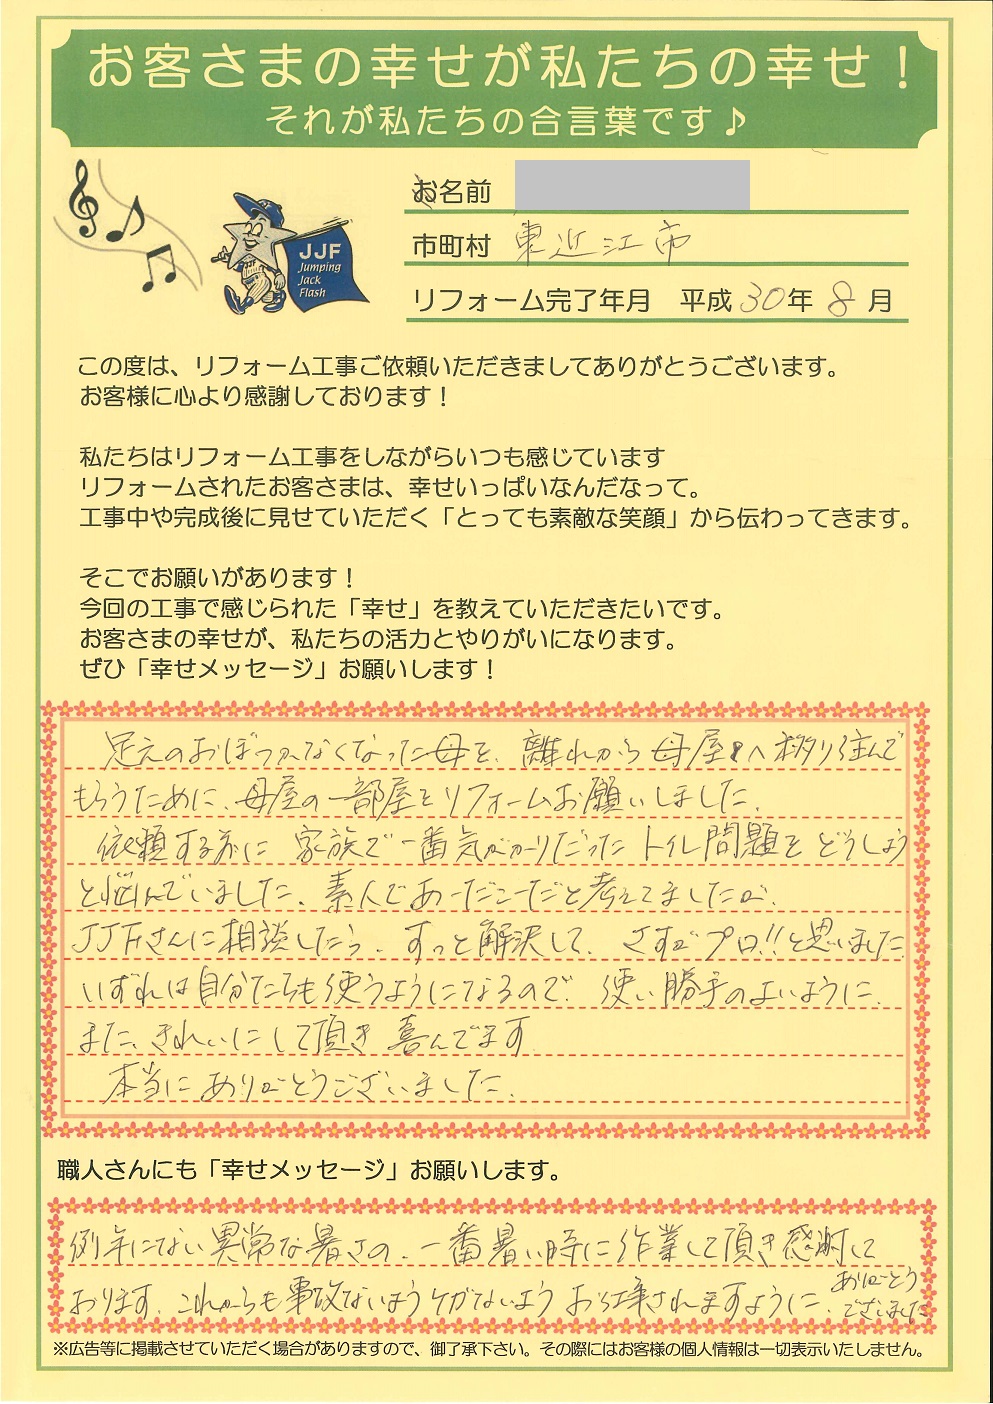 お客さまの幸せが私たちの幸せ！
それが私たちの合言葉です♪
お名前
市町村 東近江市
リフォーム完了年月 平成30年8月
JJF
Jumping
Jack
Flash
この度は、リフォーム工事ご依頼いただきましてありがとうございます。
お客様に心より感謝しております！
私たちはリフォーム工事をしながらいつも感じています
リフォームされたお客さまは、幸せいっぱいなんだなって。
工事中や完成後に見せていただく「とっても素敵な笑顔」から伝わってきます。
そこでお願いがあります！
今回の工事で感じられた「幸せ」を教えていただきたいです。
お客さまの幸せが、私たちの活力とやりがいになります。
ぜひ「幸せメッセージ」お願いします！
足元のおぼつかなくなった母を、離れから母屋へ移り住んで
もらうために、母屋の一部屋をリフォームお願いしました。
依頼する前に家族で一番気がかりだったトイレ問題をどうしよう
と悩んでいました。素人であーだこーだと考えてましたが、
JJFさんに相談したら、すっと解決して、さすがプロ!!と思いました
いずれは自分たちも使うようになるので、使い勝手のよいように、
また、きれいにして頂き喜んでます
本当にありがとうございました。
職人さんにも「幸せメッセージ」お願いします。
例年にない異常な暑さの、一番暑い時に作業して頂き感謝して
おります。これからも事故ないようケガないようお仕事されますように。
ありがとう
ございました
※広告等に掲載させていただく場合がありますので、御了承下さい。その際にはお客様の個人情報は一切表示いたしません。